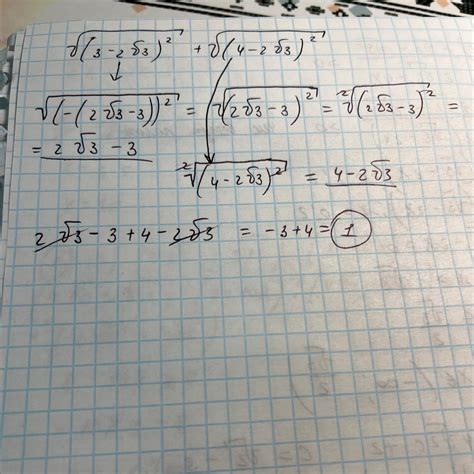 √(3-2√3)² + √(4-2√3)²
√(-(2√3-3))² = √(2√3-3)² = ²√(2√3-3)² =
= 2√3 - 3
²√(4-2√3)² = 4-2√3
2√3 - 3 + 4 - 2√3 = -3+4 = 1